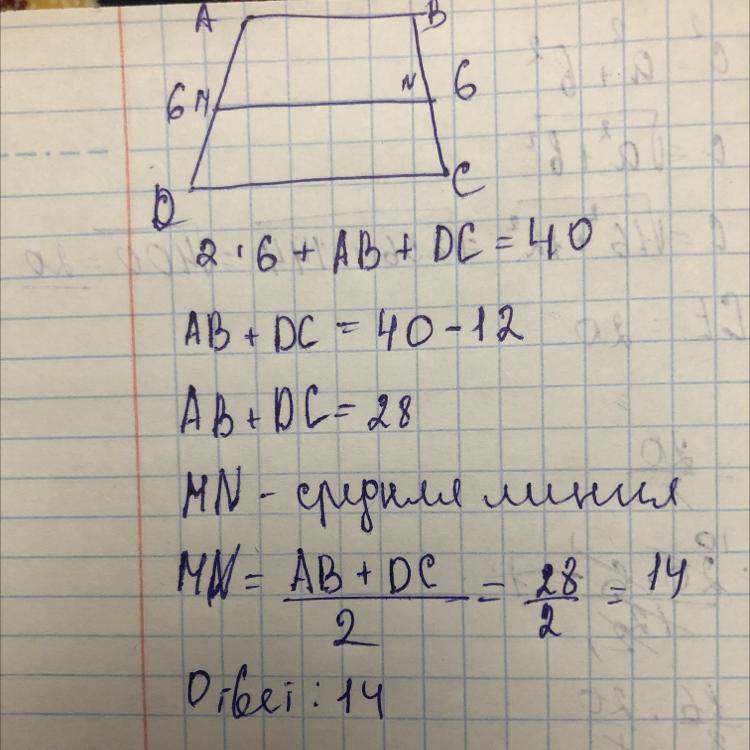 A B
6 М N 6
D C
2 · 6 + AB + DC = 40
AB + DC = 40 - 12
AB + DC = 28
MN - средняя линия
MN = \frac{AB + DC}{2} = \frac{28}{2} = 14
Ответ: 14